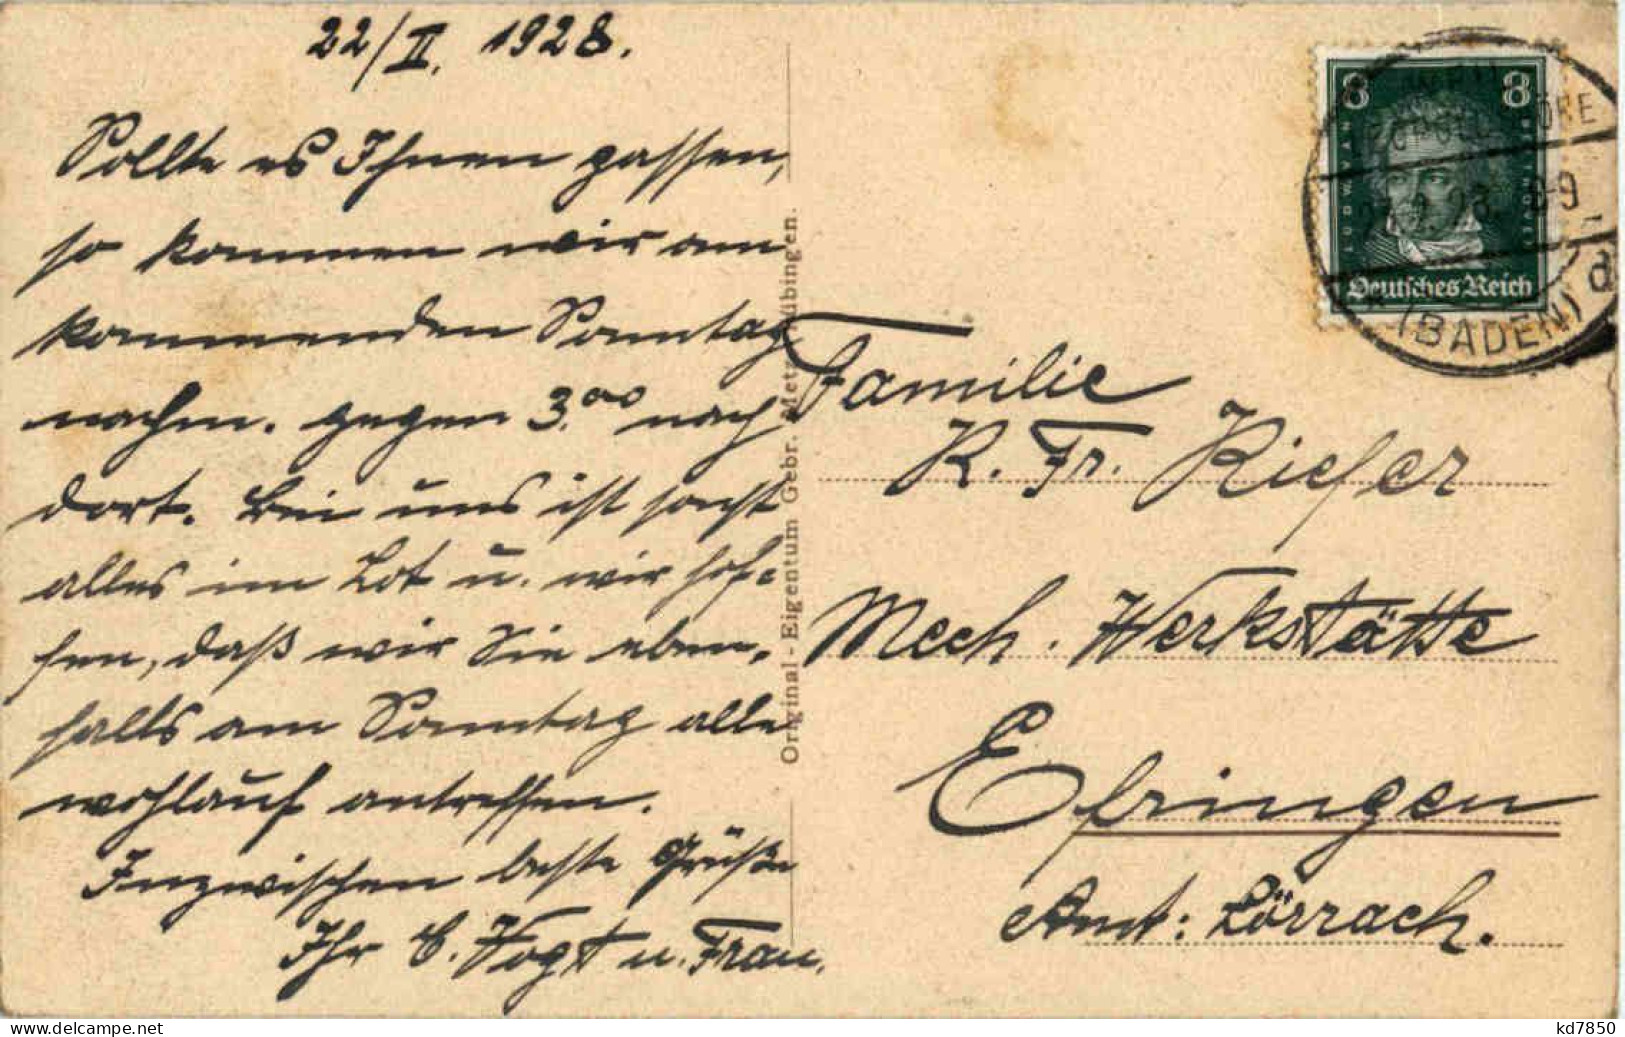 22/II. 1928.
Sollte es Ihnen passen,
so kommen wir am
kommenden Sonntag
nachm. gegen 3.00 nach
dort. Bei uns ist sonst
alles im Lot u. wir hof-
fen, daß wir Sie eben-
falls am Sonntag alle
wohlauf antreffen.
Inzwischen beste Grüße
Ihr E. Vogt u. Frau.
Original-Eigentum Gebr. Metz, Tübingen.
8 8
LUDW. VAN
Deutsches Reich
8-9
(BADEN) d
Familie
K. Fr. Kiefer
Mech. Werkstätte
Efringen
Amt: Lörrach.
delcampe.net
kd7850